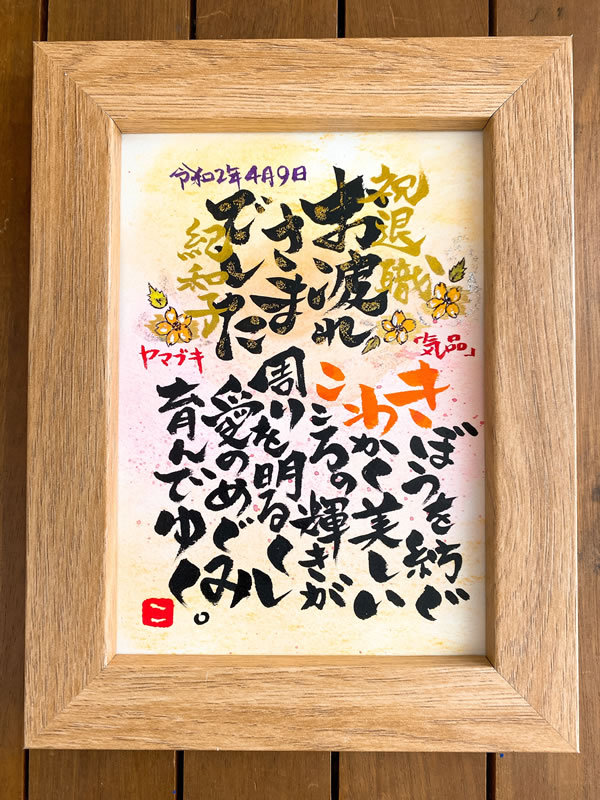 令和2年4月9日
祝退職
お疲れ
さま
でした
紀和子
「気品」
ヤマブキ
きぼうを紡ぐ
わかく美しい
こころの輝きが
周りを明るくし
愛のめぐみ
育んでゆく。
こ